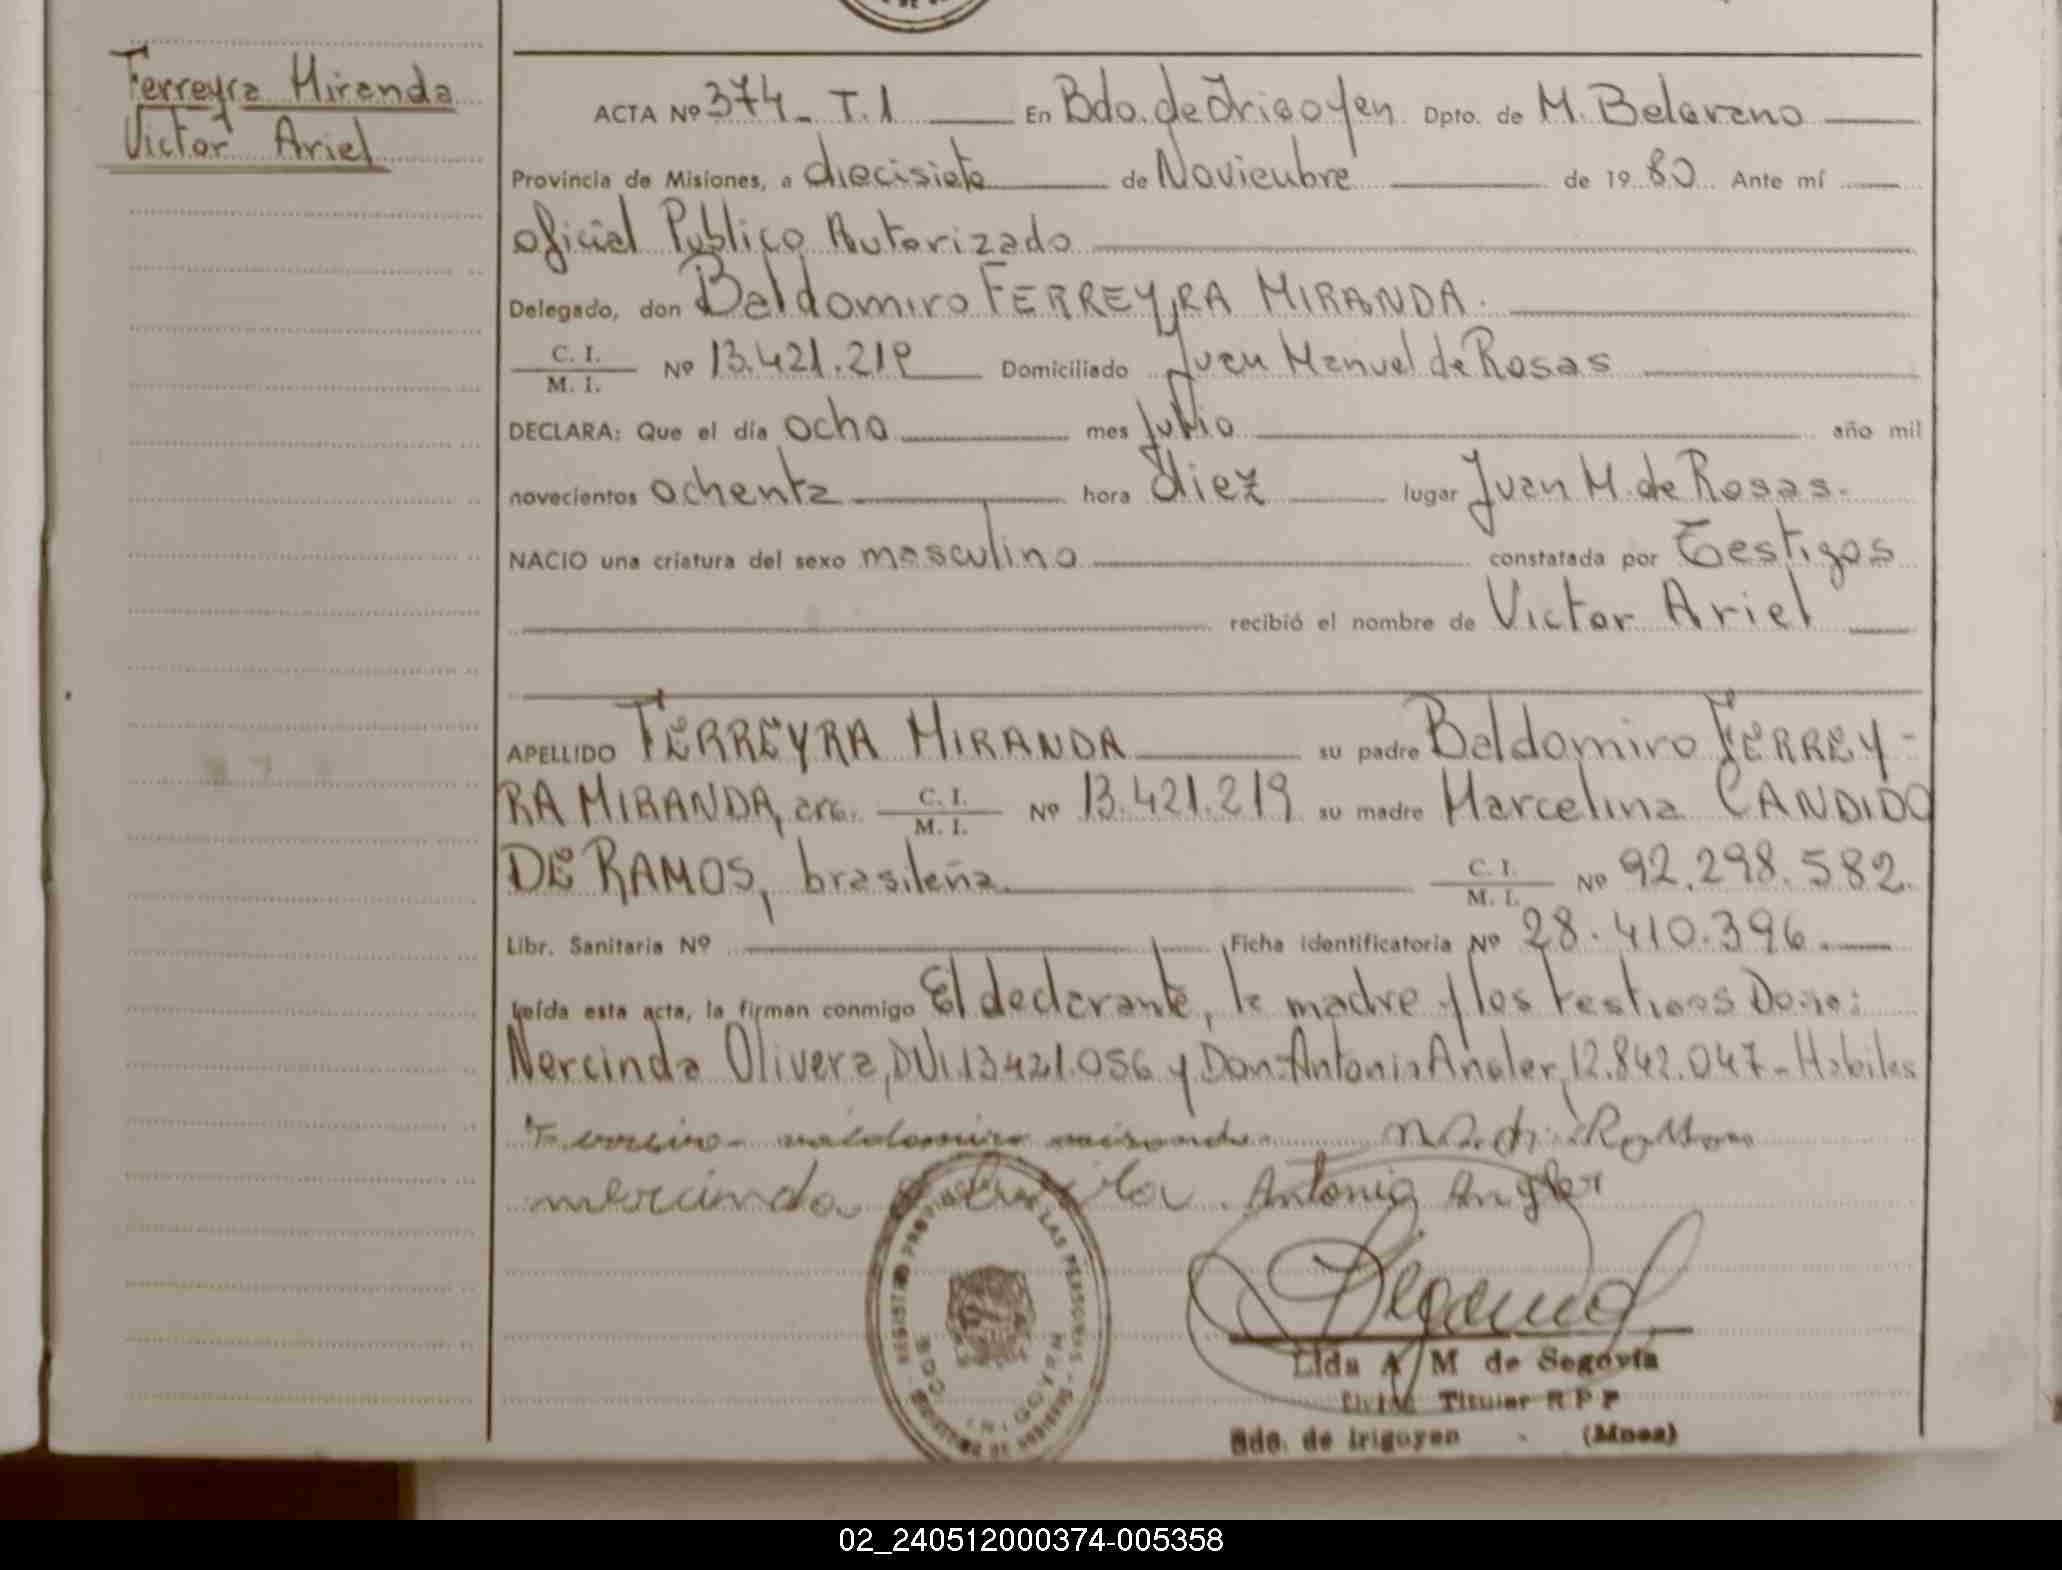 Ferreyra Miranda
Victor Ariel
ACTA Nº 374_ T.1 En Bdo. de Irigoyen Dpto. de M. Belgrano
Provincia de Misiones, a diecisiete de Noviembre de 1980 Ante mí
oficial Público Autorizado
Delegado, don Baldomiro FERREYRA MIRANDA.
C. I.
M. I. Nº 13.421.219 Domiciliado Juan Manuel de Rosas
DECLARA: Que el día ocho mes Julio año mil
novecientos ochenta hora diez lugar Juan M. de Rosas.
NACIO una criatura del sexo masculino constatada por Testigos
recibió el nombre de Victor Ariel
APELLIDO FERREYRA MIRANDA su padre Baldomiro FERREY-
RA MIRANDA, arg. C. I. M. I. Nº 13.421.219 su madre Marcelina CANDIDO
DE RAMOS, brasileña C. I. M. I. Nº 92.298.582.
Libr. Sanitaria Nº Ficha identificatoria Nº 28.410.396
Leída esta acta, la firman conmigo El declarante, la madre y los testigos Doña:
Nercinda Olivera, DUI 13421.056 y Don: Antonio Angler, 12.842.047- Habiles
Antonio Angler
REGISTRO PROVINCIAL DE LAS PERSONAS
BDO. IRIGOYEN
Lida A M de Segovia
Titular R P P
Bdo. de Irigoyen - (Mnes)
02_240512000374-005358